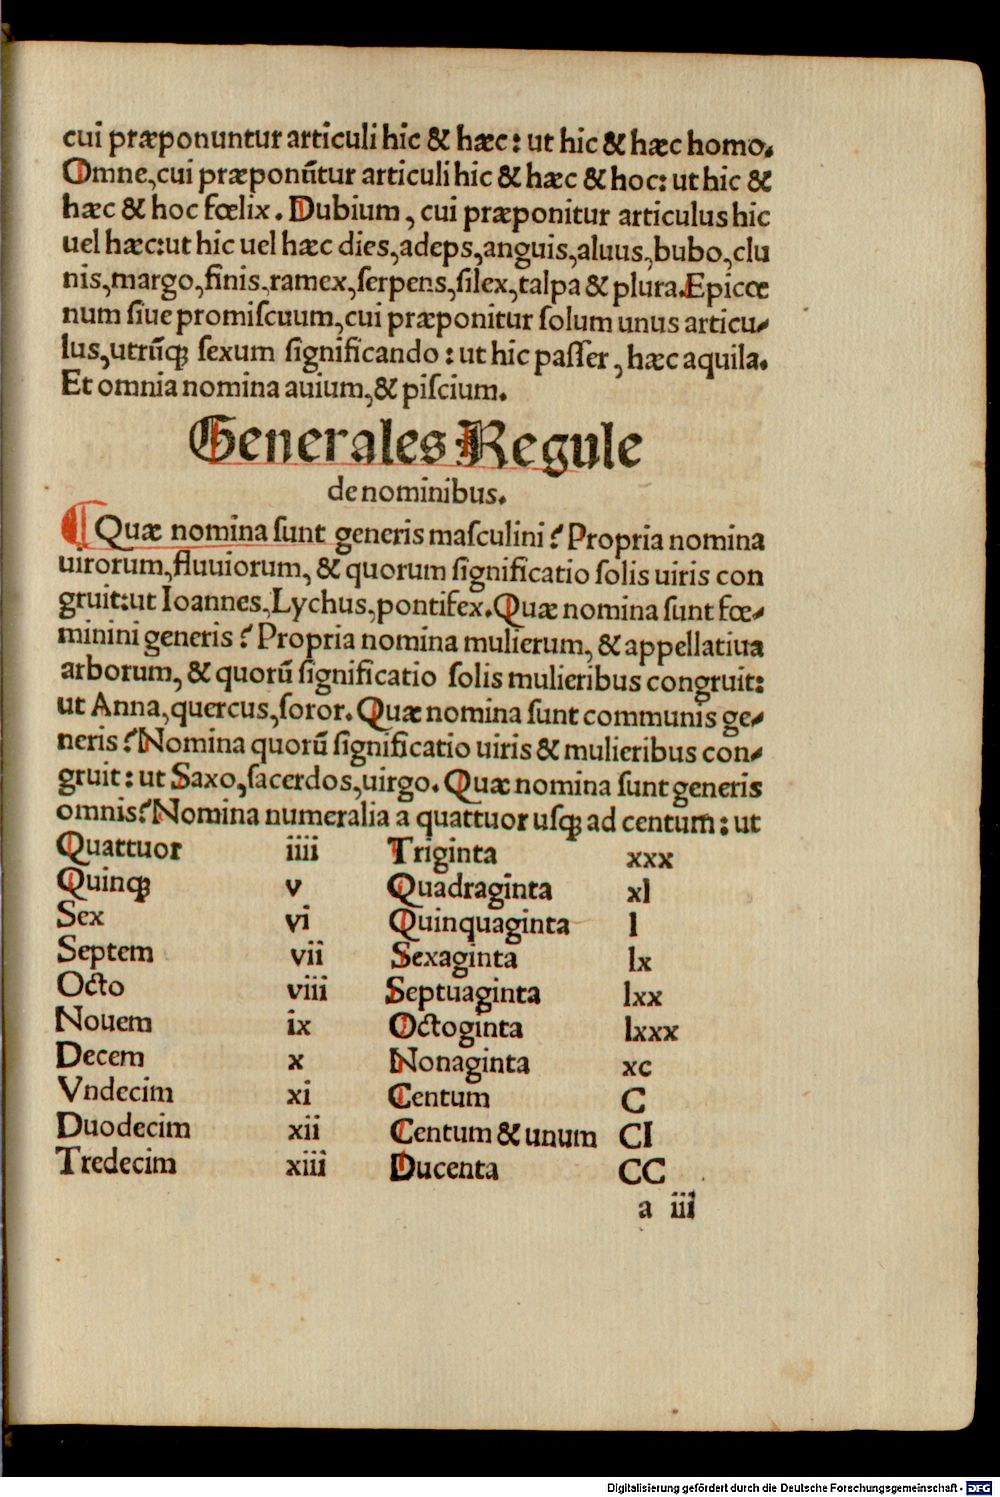 cui præponuntur articuli hic & hæc: ut hic & hæc homo.
Omne, cui præponũtur articuli hic & hæc & hoc: ut hic &
hæc & hoc fœlix. Dubium, cui præponitur articulus hic
uel hæc: ut hic uel hæc dies, adeps, anguis, aluus, bubo, clu
nis, margo, finis. ramex, ſerpens, ſilex, talpa & plura. Epicœ
num ſiue promiſcuum, cui præponitur ſolum unus articu⸗
lus, utrũqꝫ ſexum ſignificando: ut hic paſſer, hæc aquila.
Et omnia nomina auium, & piſcium.
Generales Regule
de nominibus.
Quæ nomina ſunt generis maſculini? Propria nomina
uirorum, fluuiorum, & quorum ſignificatio ſolis uiris con
gruit: ut Ioannes, Lychus, pontifex. Quæ nomina ſunt fœ⸗
minini generis? Propria nomina mulierum, & appellatiua
arborum, & quorũ ſignificatio ſolis mulieribus congruit:
ut Anna, quercus, ſoror. Quæ nomina ſunt communis ge⸗
neris? Nomina quorũ ſignificatio uiris & mulieribus con⸗
gruit: ut Saxo, ſacerdos, uirgo. Quæ nomina ſunt generis
omnis? Nomina numeralia a quattuor uſqꝫ ad centum: ut
Quattuor iiii Triginta xxx
Quinqꝫ v Quadraginta xl
Sex vi Quinquaginta l
Septem vii Sexaginta lx
Octo viii Septuaginta lxx
Nouem ix Octoginta lxxx
Decem x Nonaginta xc
Vndecim xi Centum C
Duodecim xii Centum & unum CI
Tredecim xiii Ducenta CC
a iii
Digitalisierung gefördert durch die Deutsche Forschungsgemeinschaft - DFG